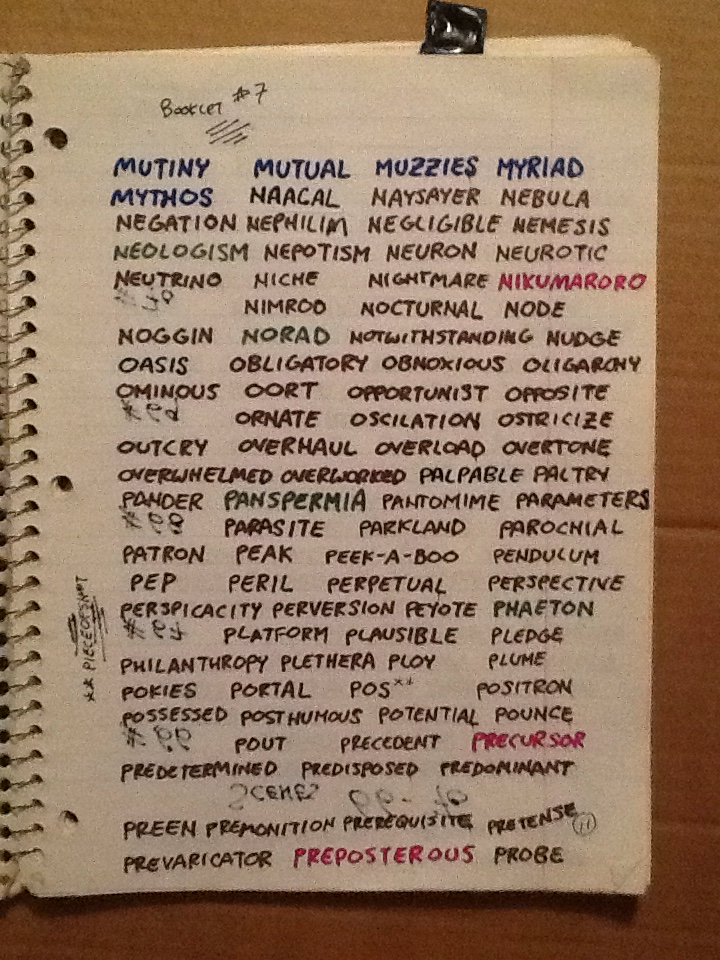 Booklet #7
MUTINY MUTUAL MUZZIES MYRIAD
MYTHOS NAACAL NAYSAYER NEBULA
NEGATION NEPHILIM NEGLIGIBLE NEMESIS
NEOLOGISM NEPOTISM NEURON NEUROTIC
NEUTRINO NICHE NIGHTMARE NIKUMARORO
NIMROD NOCTURNAL NODE
NOGGIN NORAD NOTWITHSTANDING NUDGE
OASIS OBLIGATORY OBNOXIOUS OLIGARCHY
OMINOUS OORT OPPORTUNIST OPPOSITE
ORNATE OSCILATION OSTRICIZE
OUTCRY OVERHAUL OVERLOAD OVERTONE
OVERWHELMED OVERWORKED PALPABLE PALTRY
PANDER PANSPERMIA PANTOMIME PARAMETERS
PARASITE PARKLAND PAROCHIAL
PATRON PEAK PEEK-A-BOO PENDULUM
PEP PERIL PERPETUAL PERSPECTIVE
PERSPICACITY PERVERSION PEYOTE PHAETON
PLATFORM PLAUSIBLE PLEDGE
PHILANTHROPY PLETHERA PLOY PLUME
POKIES PORTAL POS** POSITRON
POSSESSED POSTHUMOUS POTENTIAL POUNCE
POUT PRECEDENT PRECURSOR
PREDETERMINED PREDISPOSED PREDOMINANT
SCENES
PREEN PREMONITION PREREQUISITE PRETENSE 11
PREVARICATOR PREPOSTEROUS PROBE
** PIECEOFSHIT